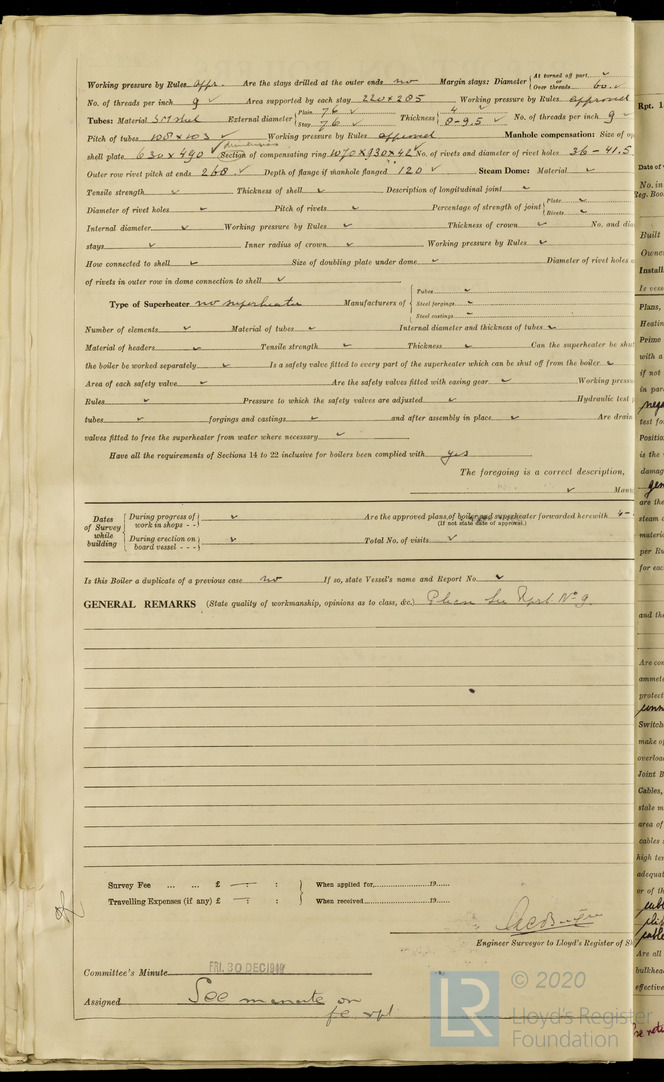 Working pressure by Rules appr. Are the stays drilled at the outer ends no Margin stays: Diameter { At turned off part ✓ or Over threads 60 ✓
No. of threads per inch 9 ✓ Area supported by each stay 220 x 285 Working pressure by Rules approved
Tubes: Material S M steel External diameter { Plain 76 ✓ Stay 76 ✓ Thickness { 4 ✓ 8-9.5 ✓ No. of threads per inch 9 ✓
Pitch of tubes 108 x 103 ✓ Working pressure by Rules approved Manhole compensation: Size of op
shell plate 630 x 490 ✓ Section of compensating ring 1070 x 930 x 42 ✓ No. of rivets and diameter of rivet holes 36 - 41.5
Outer row rivet pitch at ends 268 ✓ Depth of flange if manhole flanged 120 ✓ Steam Dome: Material ✓
Tensile strength ✓ Thickness of shell ✓ Description of longitudinal joint ✓
Diameter of rivet holes ✓ Pitch of rivets ✓ Percentage of strength of joint { Plate ✓ Rivets ✓
Internal diameter ✓ Working pressure by Rules ✓ Thickness of crown ✓ No. and dia
stays ✓ Inner radius of crown ✓ Working pressure by Rules ✓
How connected to shell ✓ Size of doubling plate under dome ✓ Diameter of rivet holes
of rivets in outer row in dome connection to shell ✓
Type of Superheater no superheater Manufacturers of { Tubes ✓ Steel forgings ✓ Steel castings ✓
Number of elements ✓ Material of tubes ✓ Internal diameter and thickness of tubes ✓
Material of headers ✓ Tensile strength ✓ Thickness ✓ Can the superheater be shut
the boiler be worked separately ✓ Is a safety valve fitted to every part of the superheater which can be shut off from the boiler ✓
Area of each safety valve ✓ Are the safety valves fitted with easing gear ✓ Working press
Rules ✓ Pressure to which the safety valves are adjusted ✓ Hydraulic test p
tubes ✓ forgings and castings ✓ and after assembly in place ✓ Are drain
valves fitted to free the superheater from water where necessary ✓
Have all the requirements of Sections 14 to 22 inclusive for boilers been complied with yes
The foregoing is a correct description,
✓ Manu
Dates of Survey while building { During progress of work in shops - - } ✓ Are the approved plans of boiler and superheater forwarded herewith 4-
(If not state date of approval.)
{ During erection on board vessel - - - } ✓ Total No. of visits ✓
Is this Boiler a duplicate of a previous case no If so, state Vessel's name and Report No. ✓
GENERAL REMARKS (State quality of workmanship, opinions as to class, &c.) Please see Rprt. No 9.
Survey Fee ... ... £ — : : } When applied for, 19
Travelling Expenses (if any) £ — : : } When received, 19
Engineer Surveyor to Lloyd's Register of Sh
Committee's Minute FRI. 30 DEC 1949
Assigned See minute on
fe rpt
© 2020
LR
Lloyd's Register
Foundation
Rpt. 1
Date of
No. in
Reg. Boo
Built
Owne
Install
Is vess
Plans,
Heatin
Prime
with a
if not
in par
test fo
Positio
is the
damag
gen
are the
steam
materi
per Ru
for eac
and the
Are con
ammete
protect
Switch
make of
overloa
Joint B
Cables,
state m
area of
cables
high ten
adequat
or of th
Are all
bulkhea
effective